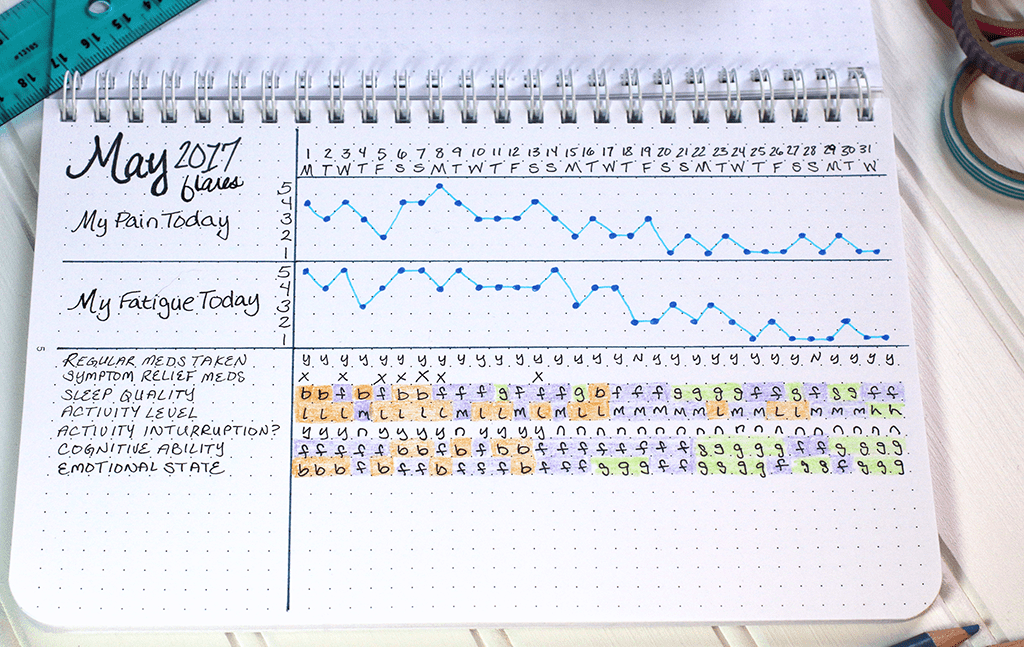 14 15 16 17 18
May 2017
flares
1 2 3 4 5 6 7 8 9 10 11 12 13 14 15 16 17 18 19 20 21 22 23 24 25 26 27 28 29 30 31
M T W T F S S M T W T F S S M T W T F S S M T W T F S S M T W
My Pain Today
5
4
3
2
1
My Fatigue Today
5
4
3
2
1
5
REGULAR MEDS TAKEN y y y y y y y y y y y y y y y y y N y y y y y y y y N y y y y
SYMPTOM RELIEF MEDS x x x x x x x
SLEEP QUALITY b b f b f b b f f f g f f f g b f f f g g g g f f g f g g f f
ACTIVITY LEVEL L L L M L L L L M L L M L M L L M M M M M L M M L L M M M h h
ACTIVITY INTURRUPTION? y y y n y y y y n y y y y n n n n n n n n n n n n n n n n n n
COGNITIVE ABILITY f f f f f b b f b f b b f f f f f f f f g g g g g f f g g g g
EMOTIONAL STATE b b b f b f f b f f f b f f f g g g f f g g g g f g g f g g g